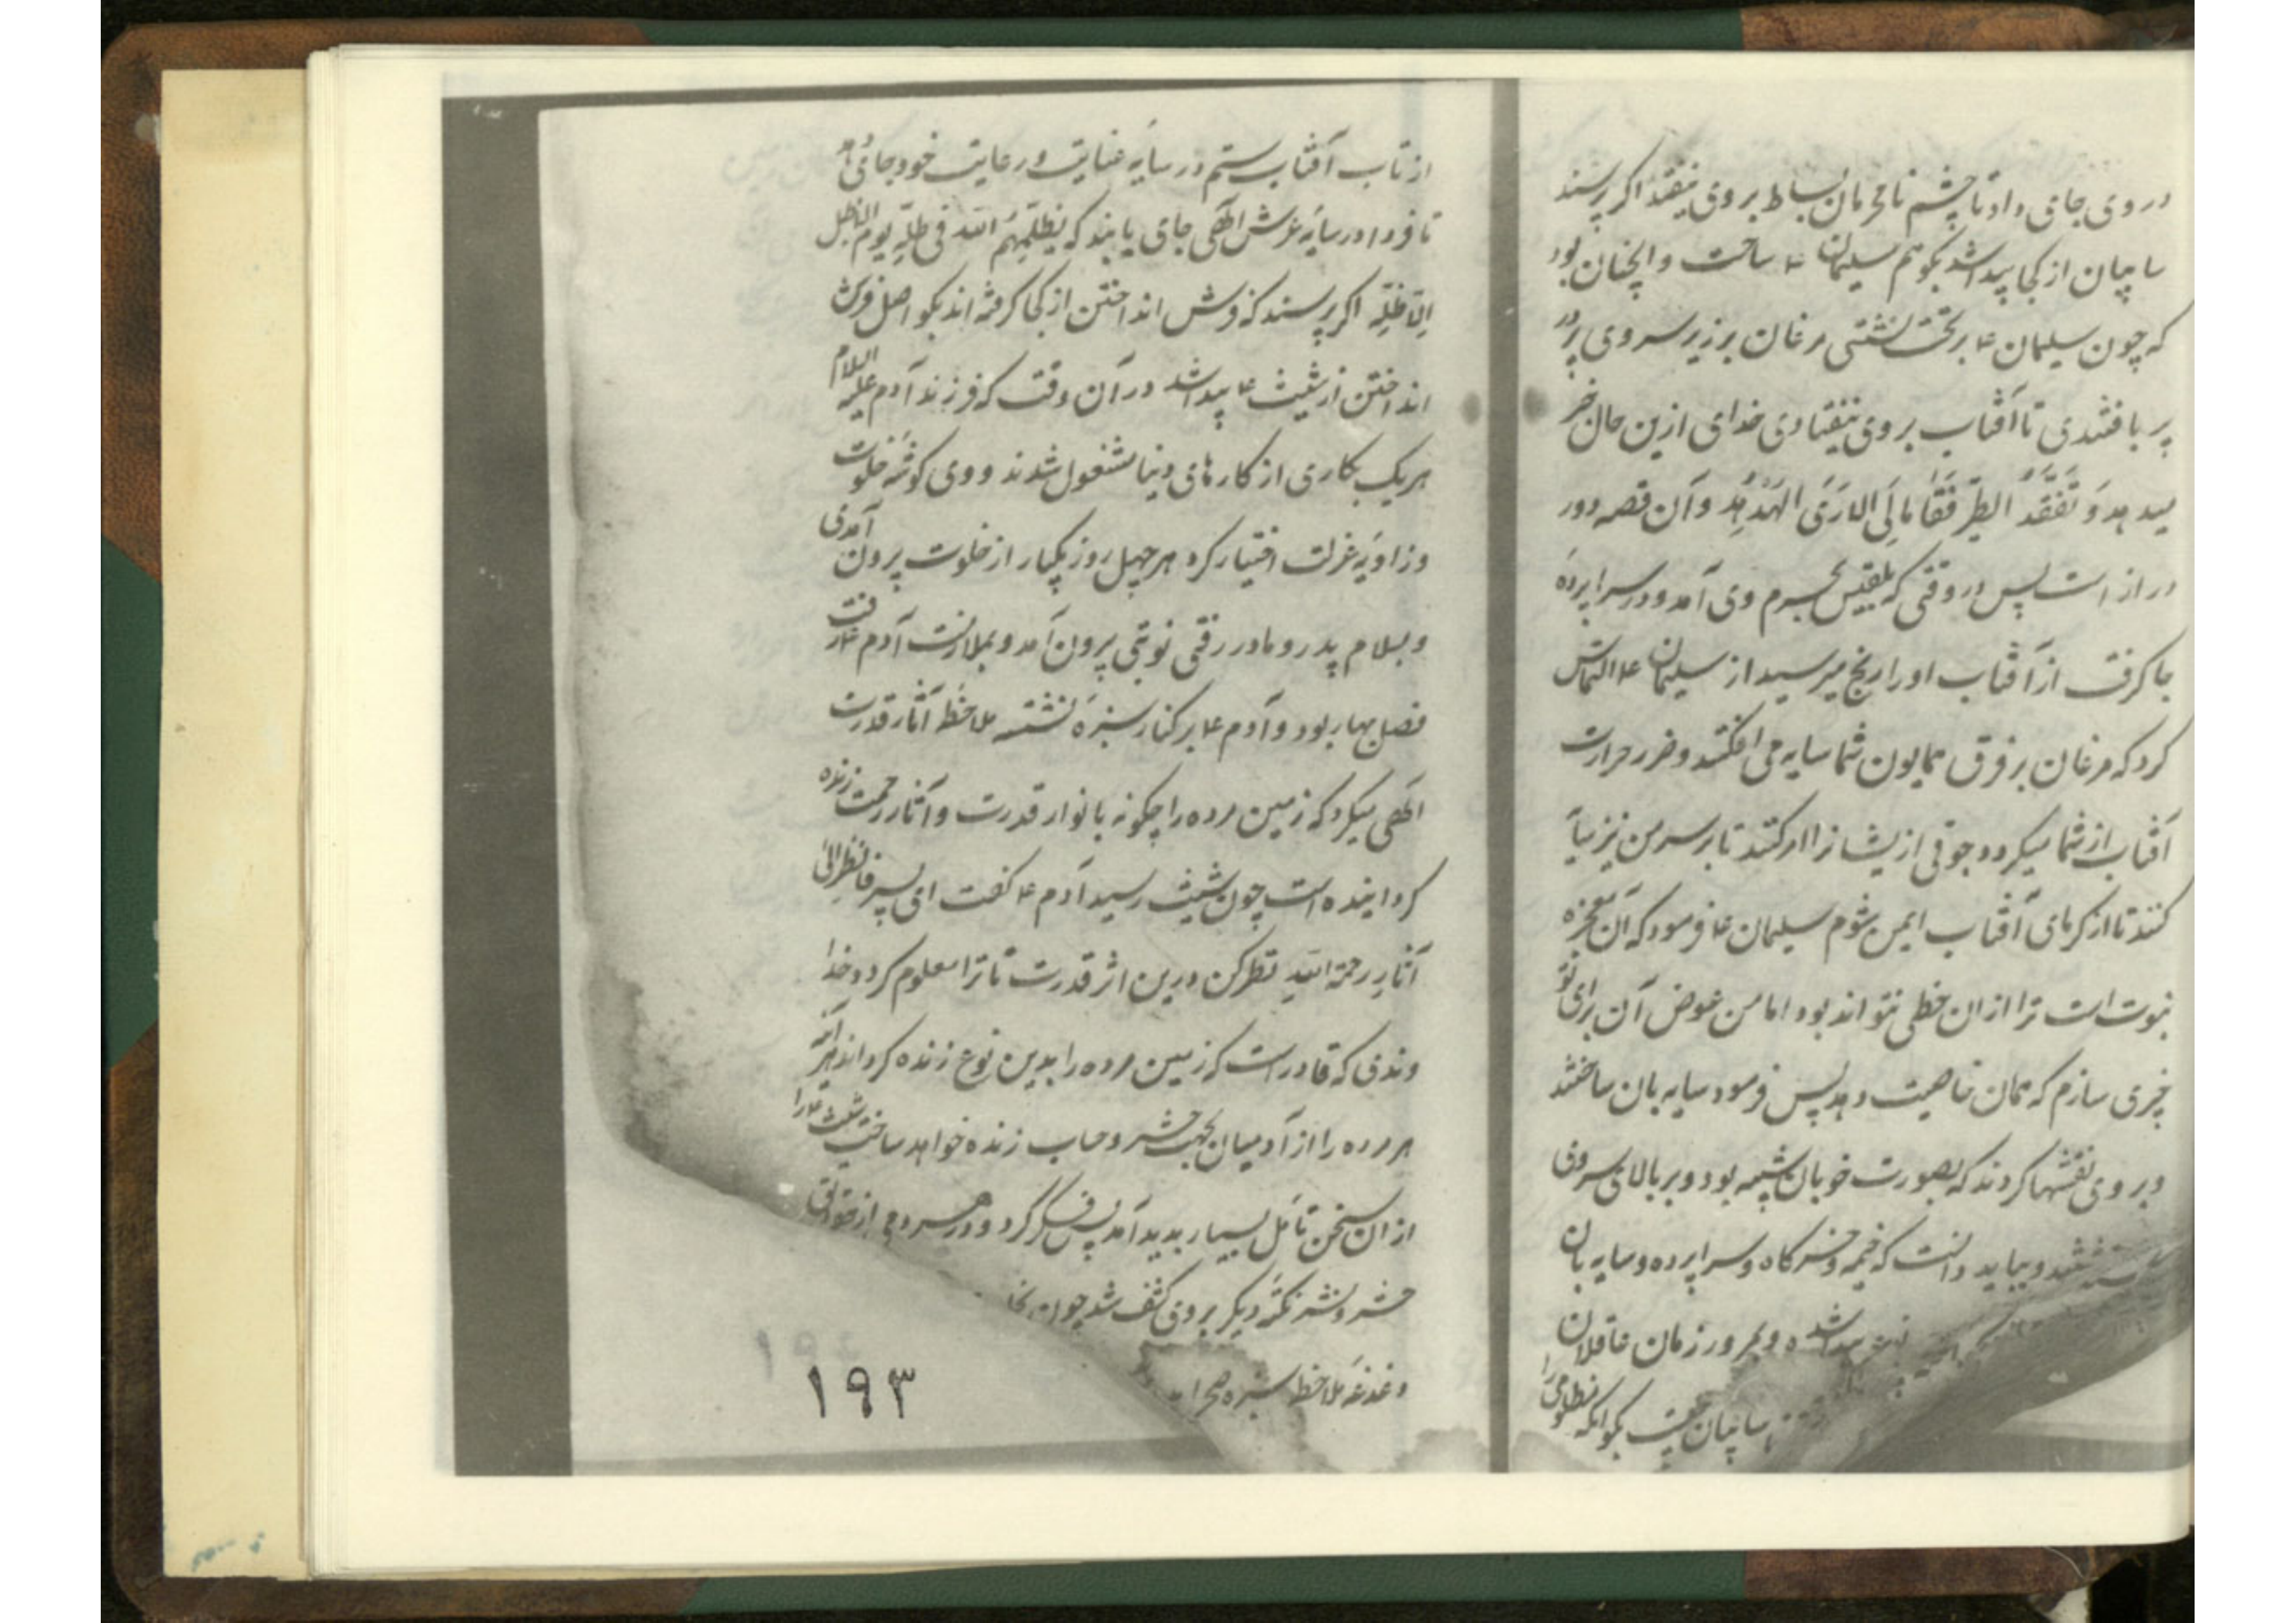 در وی جای داد تا چشم نامحرمان بساط بر وی نیفتد اکر پرسند
سایبان از کجا پیدا شد بکو هم سلیمان ۴ ساخت و آنچنان بود
که چون سلیمان ۴ بر تخت نشستی مرغان بر زیر سر وی پر در
پر بافتندی تا آفتاب بر وی نیفتادی خدای ازین حال خبر
میدهد وَ تَفَقَّدَ الطَّیْرَ فَقَالَ مَالِیَ لا اَرَی الْهُدْهُدَ و آن قصه دور
دراز است پس در وقتی که بلقیس بحرم وی آمد و در سراپرده
جا کرفت از آفتاب او را رنج میرسید از سلیمان ۴ التماس
کرد که مرغان بر فرق همایون شما سایه می افکنند و ضرر حرارت
آفتاب از شما میکردد جوقی ازیشانرا امر کنید تا بر سر من نیز سایه
کنند تا از کرمای آفتاب ایمن شوم سلیمان ۴ فرمود که آن معجزه
نبوت است ترا از ان حظی نتواند بود اما من عوض آن برای تو
چیزی سازم که همان خاصیت دهد پس فرمود سایه بان ساختند
و بر وی نقشها کردند که بصورت خوبان شبیه بود و بر بالای سر وی
و بباید دانست که خیمه و خرکاه و سراپرده و سایه بان
پیدا شده و بمرور زمان عاقلان
سایبان چیست بکو آنکه مظلومی را
از تاب آفتاب ستم در سایهٔ عنایت و رعایت خود جای دهد
تا فردا در سایهٔ عرش الهی جای یابند که یُظِلُّهُم الله فی ظلّهِ یومَ لا ظلّ
اِلّا ظلّه اکر پرسند که فرش انداختن از کجا کرفته اند بکو اصل فرش
انداختن از شیث ۴ پیدا شد در آن وقت که فرزند آدم علیه السلام
هریک بکاری از کارهای دنیا مشغول شدند و وی کوشهٔ خلوت
و زاویهٔ عزلت اختیار کرد هر چهل روز یکبار از خلوت بیرون آمدی
و بسلام پدر و مادر رفتی نوبتی بیرون آمد و بملازمت آدم ۴ رفت
فصل بهار بود و آدم ۴ بر کنار سبزهٔ نشسته ملاحظهٔ آثار قدرت
الهی میکرد که زمین مرده را چکونه بانوار قدرت و آثار رحمت زنده
کردانیده است چون شیث رسید آدم ۴ کفت ای پسر فانظر الی
آثارِ رحمة اللهِ نظر کن درین اثر قدرت تا ترا معلوم کردد خدا
وندی که قادر است که زمین مرده را بدین نوع زنده کرداند هر آینه
هر مرده را از آدمیان بجهت حشر و حساب زنده خواهد ساخت شیث ۴ را
از ان سخن تأمل بسیار پدید آمد پس فکر کرد و در هر دمی از
حشر و نشر نکتهٔ دیکر بر وی کشف شد چون
دغدغهٔ ملاحظهٔ سبزه صحرا
۱۹۳